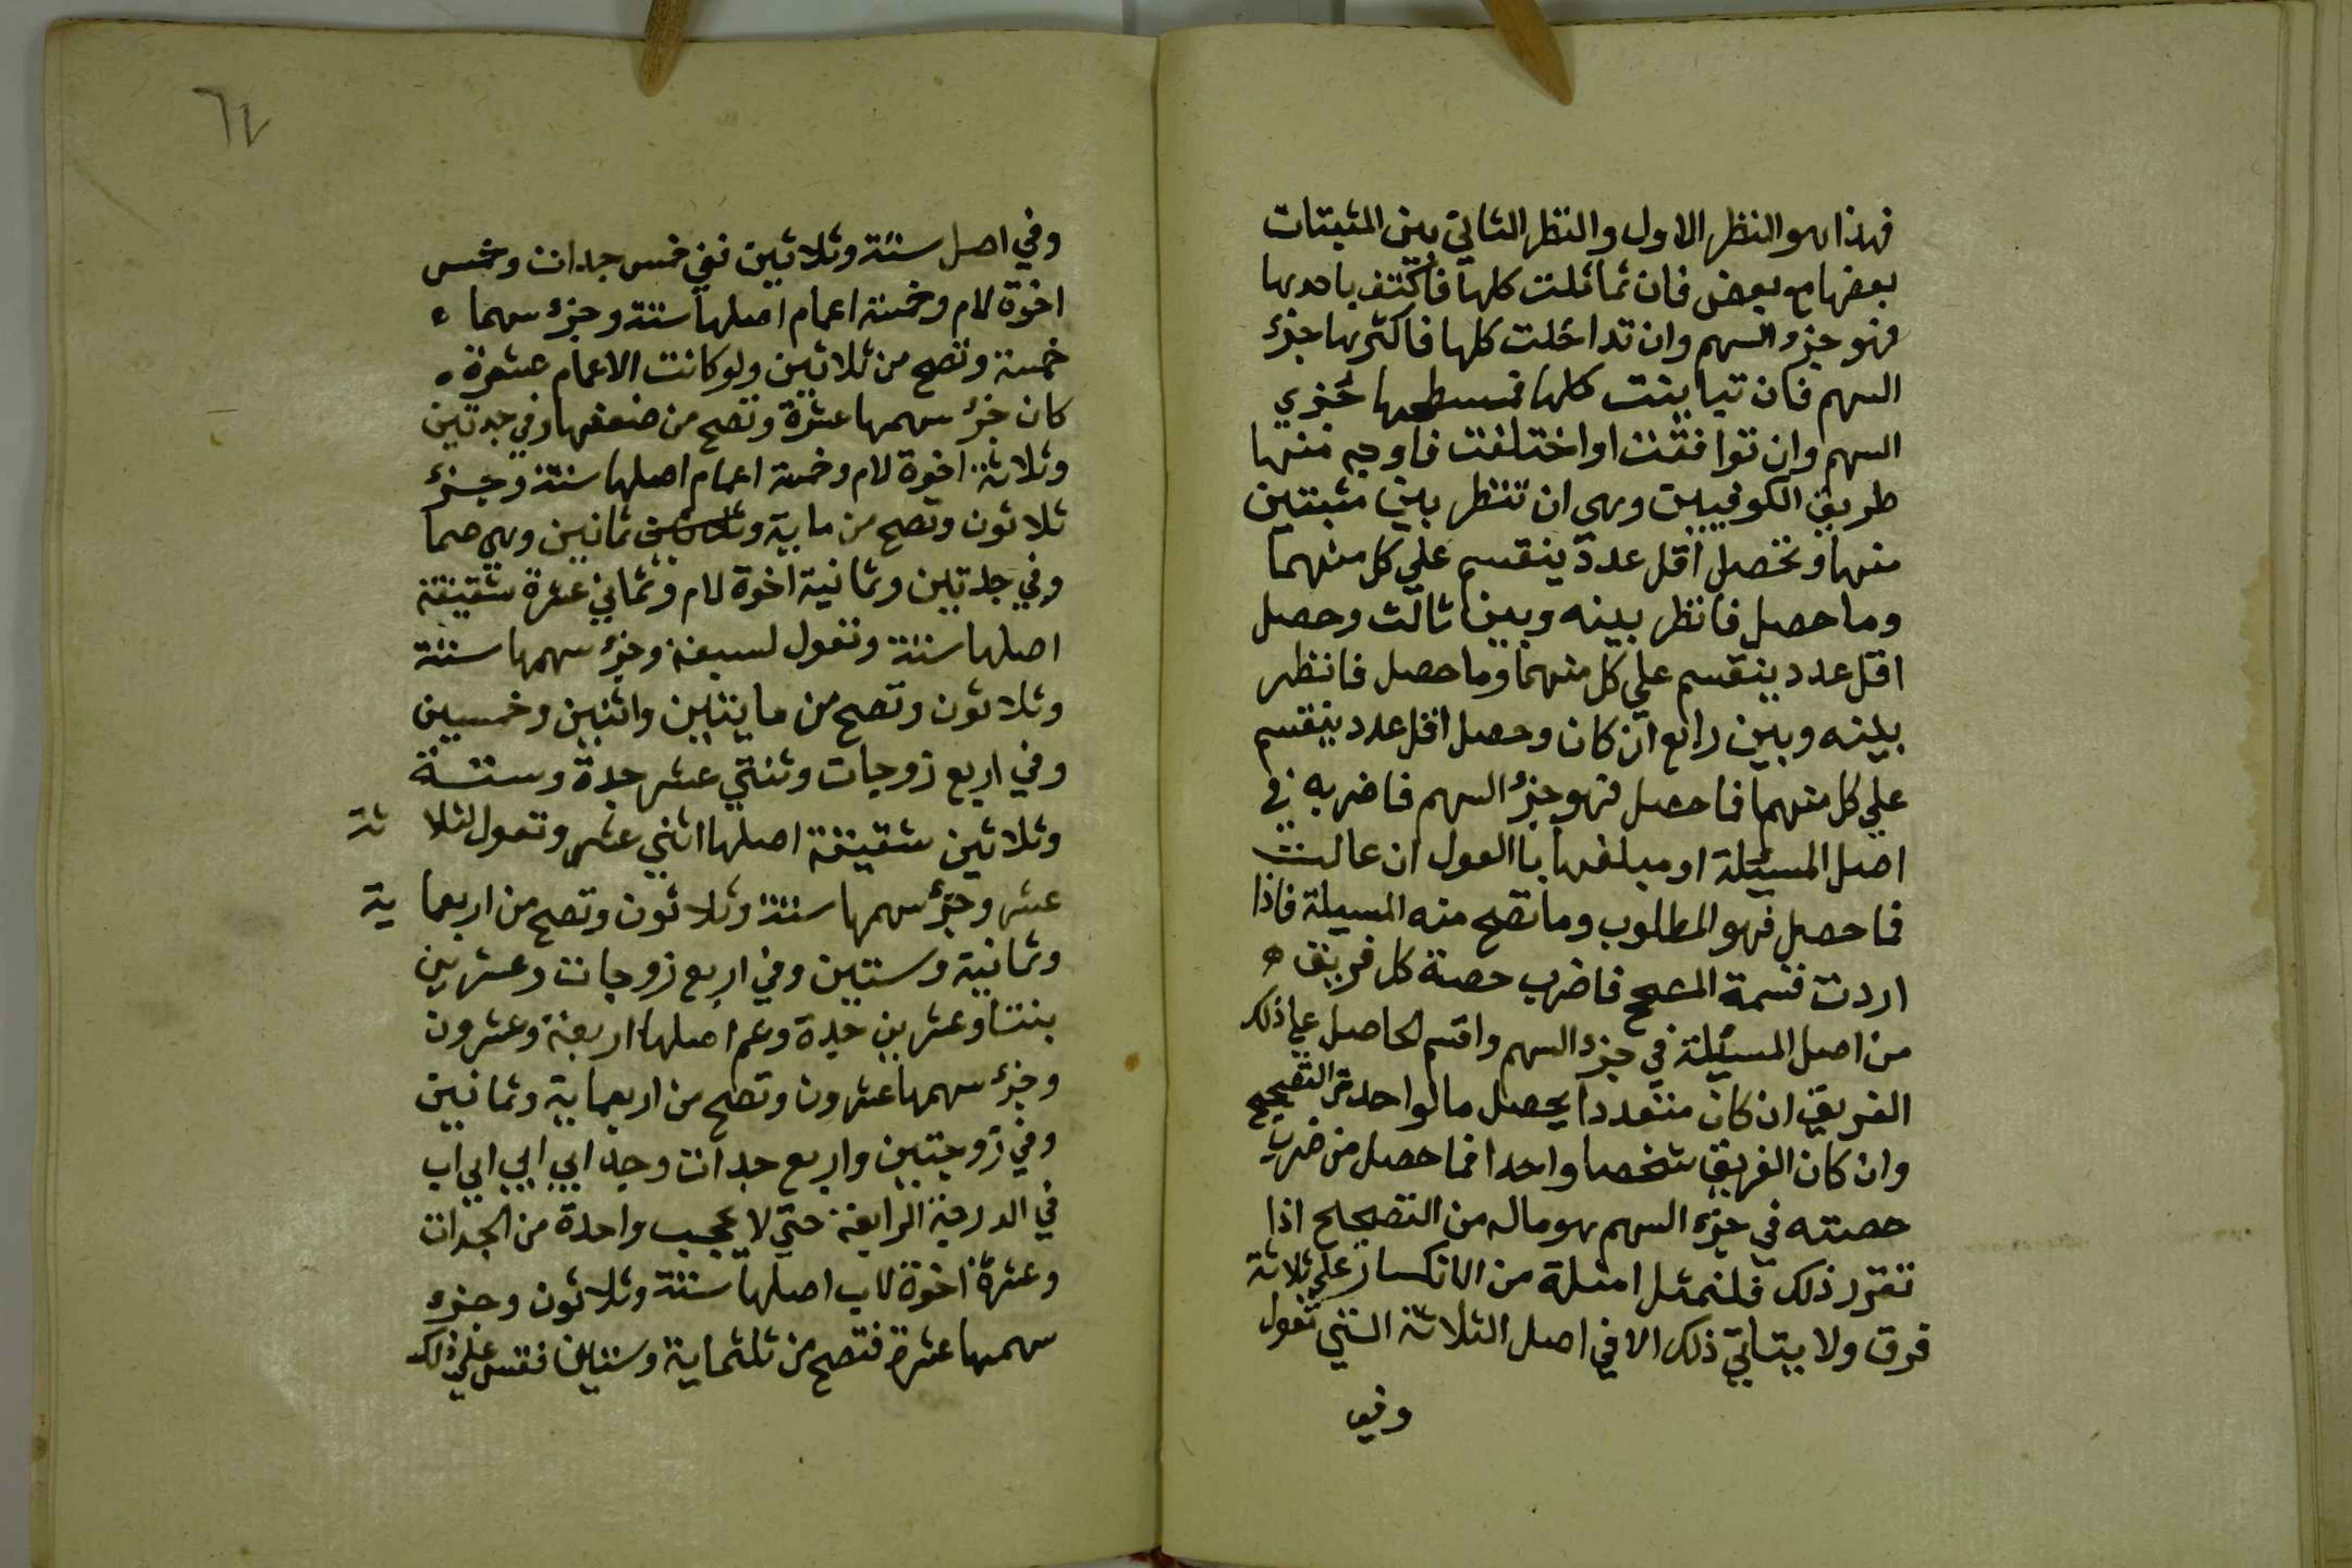 فهذا هو النظر الاول والنظر الثاني بين المثبتات
بعضها مع بعض فان تماثلت كلها فاكتف باحدها
فهو جزء السهم وان تداخلت كلها فاكثرها جزء
السهم فان تباينت كلها فمسطحها جزء
السهم وان توافقت او اختلفت فاوجه منها
طريق الكوفيين وهي ان تنظر بين مثبتين
منها وتحصل اقل عدد ينقسم علي كل منهما
وما حصل فانظر بينه وبين ثالث وحصل
اقل عدد ينقسم علي كل منهما وما حصل فانظر
بينه وبين رابع ان كان وحصل اقل عدد ينقسم
علي كل منهما فما حصل فهو جزء السهم فاضربه في
اصل المسئلة او مبلغها بالعول ان عالت
فما حصل فهو المطلوب وما تصح منه المسيلة فاذا
اردت قسمة المصحح فاضرب حصة كل فريق
من اصل المسئلة في جزء السهم واقسم الحاصل علي ذلك
الفريق ان كان متعددا يحصل ما لواحده من التصحيح
وان كان الفريق شخصا واحدا فما حصل من ضرب
حصته في جزء السهم هو ماله من التصحيح اذا
تقرر ذلك فلنمثل امثلة من الانكسار علي ثلاثة
فرق ولا يتاتي ذلك الا في اصل الثلاثة التي تعول
وفي
٦٢
وفي اصل ستة وثلاثين ففي خمس جدات وخمس
اخوة لام وخمسة اعمام اصلها ستة وجزء سهما
خمسة وتصح من ثلاثين ولو كانت الاعمام عشرة
كان جزء سهمها عشرة وتصح من ضعفها وفي جدتين
وثلاثة اخوة لام وخمسة اعمام اصلها ستة وجزء
ثلاثون وتصح من ماية وثمانين وهي صما
وفي جدتين وثمانية اخوة لام وثماني عشرة شقيقة
اصلها ستة وتعول لسبعة وجزء سهمها ستة
وثلاثون وتصح من مايتين واثنين وخمسين
وفي اربع زوجات وثنتي عشر جدة وستة
وثلاثين شقيقة اصلها اثني عشر وتعول لثلاثة
عشر وجزء سهمها ستة وثلاثون وتصح من اربعماية
وثمانية وستين وفي اربع زوجات وعشرين
بنتا وعشرين جدة وعم اصلها اربعة وعشرون
وجزء سهمها عشرون وتصح من اربعماية وثمانين
وفي زوجتين واربع جدات وجد ابي ابي ابي اب
في الدرجة الرابعة حتي لا يحجب واحدة من الجدات
وعشرة اخوة لاب اصلها ستة وثلاثون وجزء
سهمها عشرة فتصح من ثلثماية وستين فقس علي ذلك